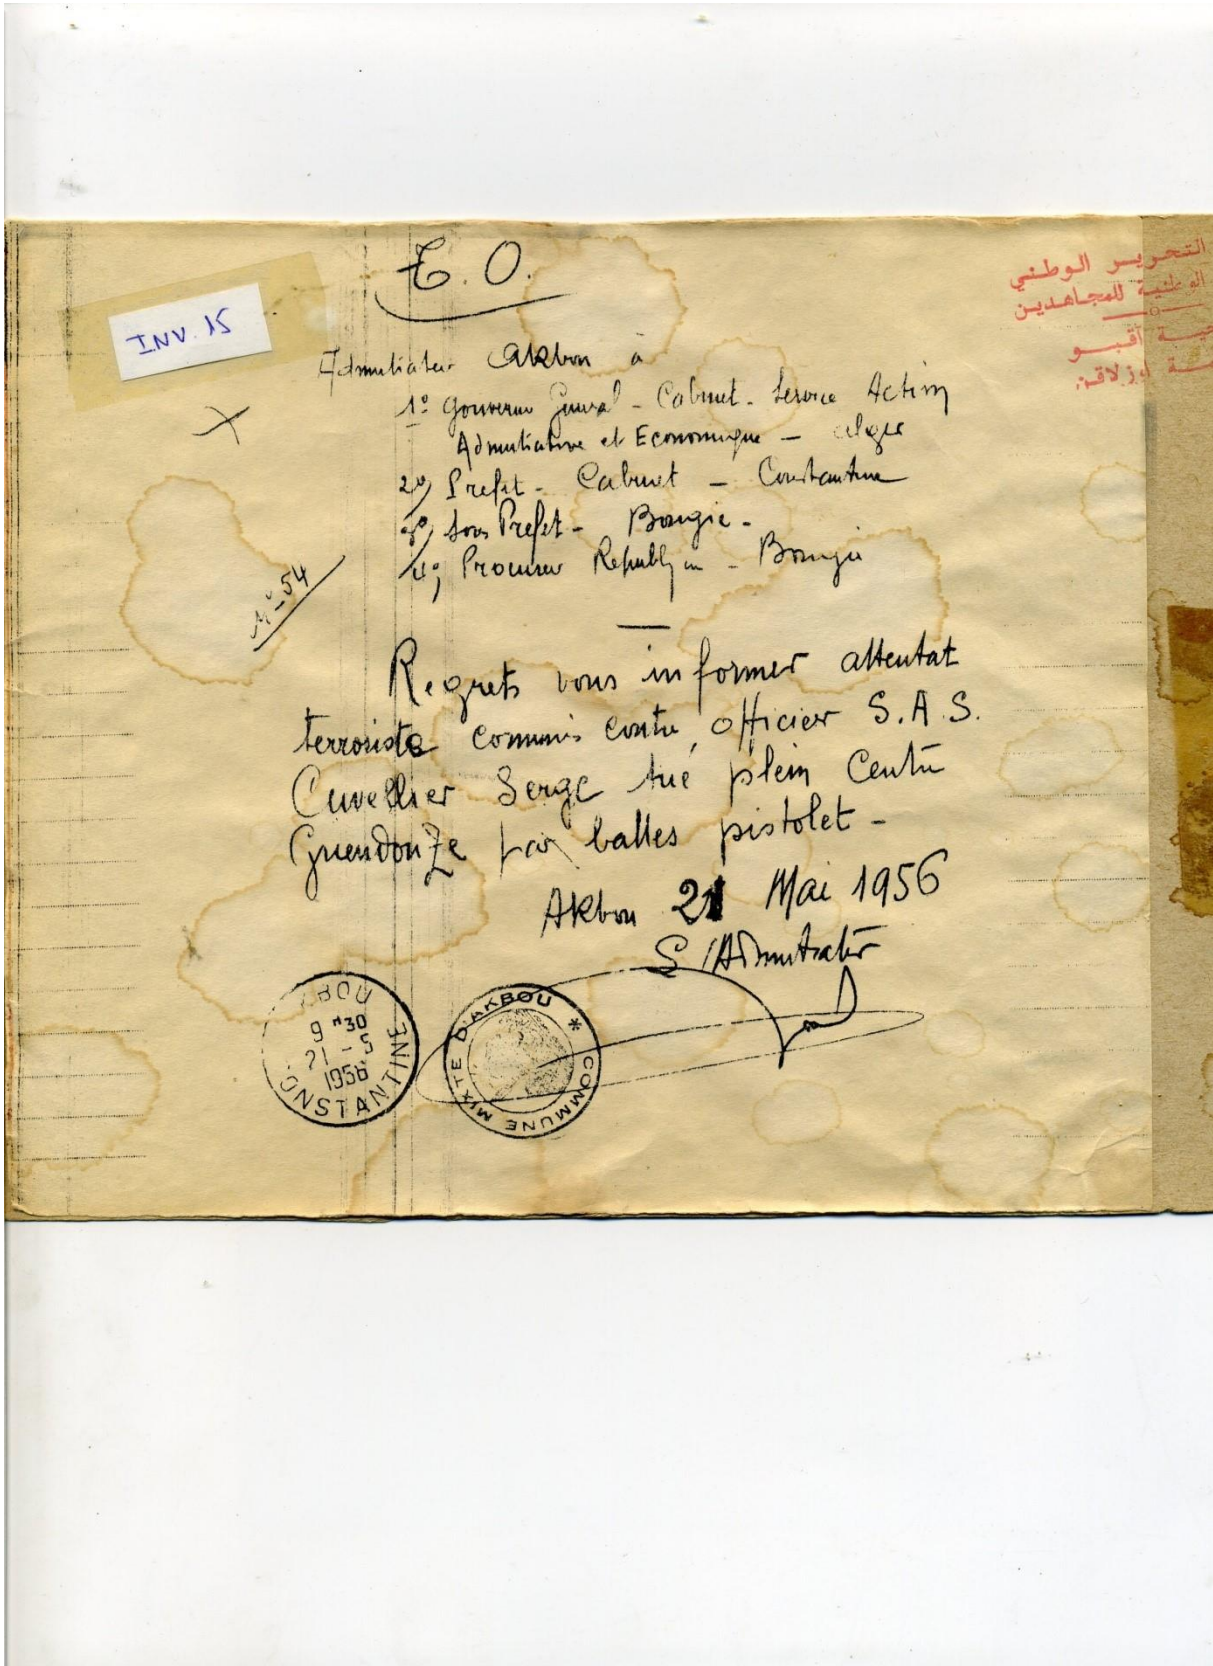 T. O.
INV. 15
التحرير الوطني
الوطنية للمجاهدين
آقبو
أوزلاقن
Admntiateur Akbou à
1º Gouverneur Général - Cabinet - Service Action
Admntiative et Economique - Alger
2º) Préfet - Cabinet - Constantine
3º) Sous Préfet - Bougie -
4º) Procureur République - Bougie
Nº 54
Regrets vous informer attentat
terroriste commis contre officier S.A.S.
Cuvellier Serge tué plein Centre
Guendouze par balles pistolet -
Akbou 21 Mai 1956
L'Admntrateur
AKBOU
9 H30
21 - 5
1956
CONSTANTINE
COMMUNE MIXTE D'AKBOU *